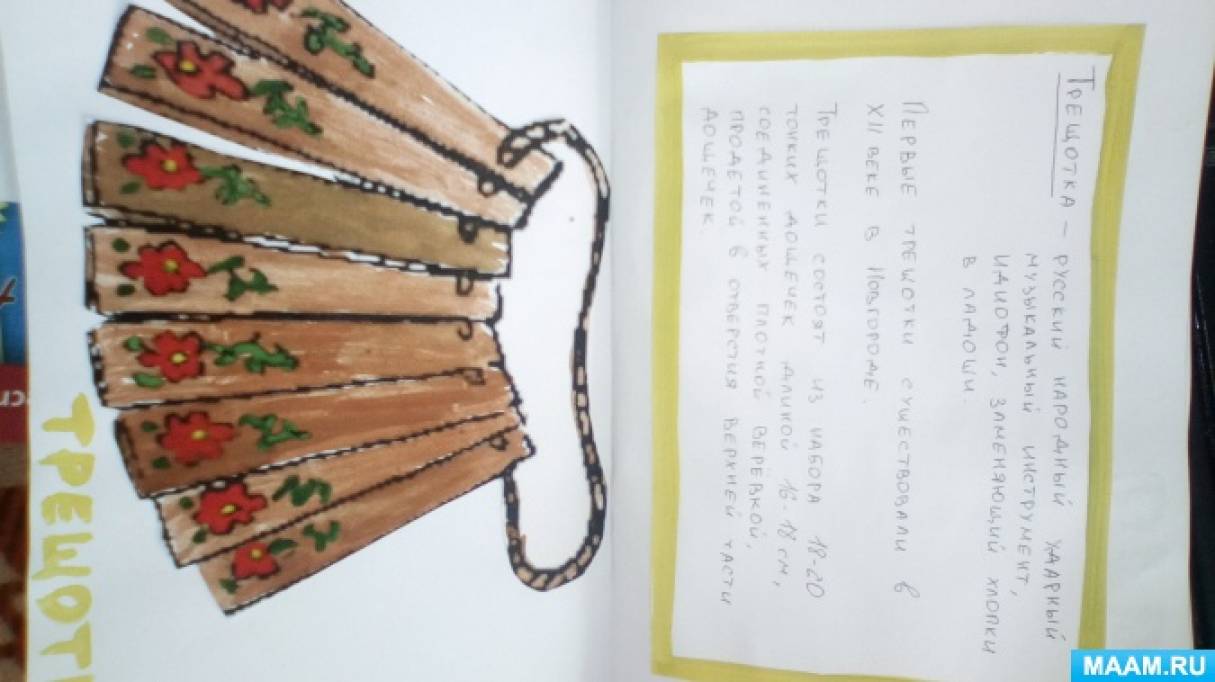 ТРЕЩОТКА – РУССКИЙ НАРОДНЫЙ УДАРНЫЙ
МУЗЫКАЛЬНЫЙ ИНСТРУМЕНТ,
ИДИОФОН, ЗАМЕНЯЮЩИЙ ХЛОПКИ
В ЛАДОШИ.
ПЕРВЫЕ ТРЕЩОТКИ СУЩЕСТВОВАЛИ В
XII ВЕКЕ В НОВГОРОДЕ.
ТРЕЩОТКИ СОСТОЯТ ИЗ НАБОРА 18-20
ТОНКИХ ДОЩЕЧЕК ДЛИНОЙ 16-18 СМ,
СОЕДИНЕННЫХ ПЛОТНОЙ ВЕРЁВКОЙ,
ПРОДЕТОЙ В ОТВЕРСТИЯ ВЕРХНЕЙ ЧАСТИ
ДОЩЕЧЕК.
ТРЕЩОТ
MAAM.RU